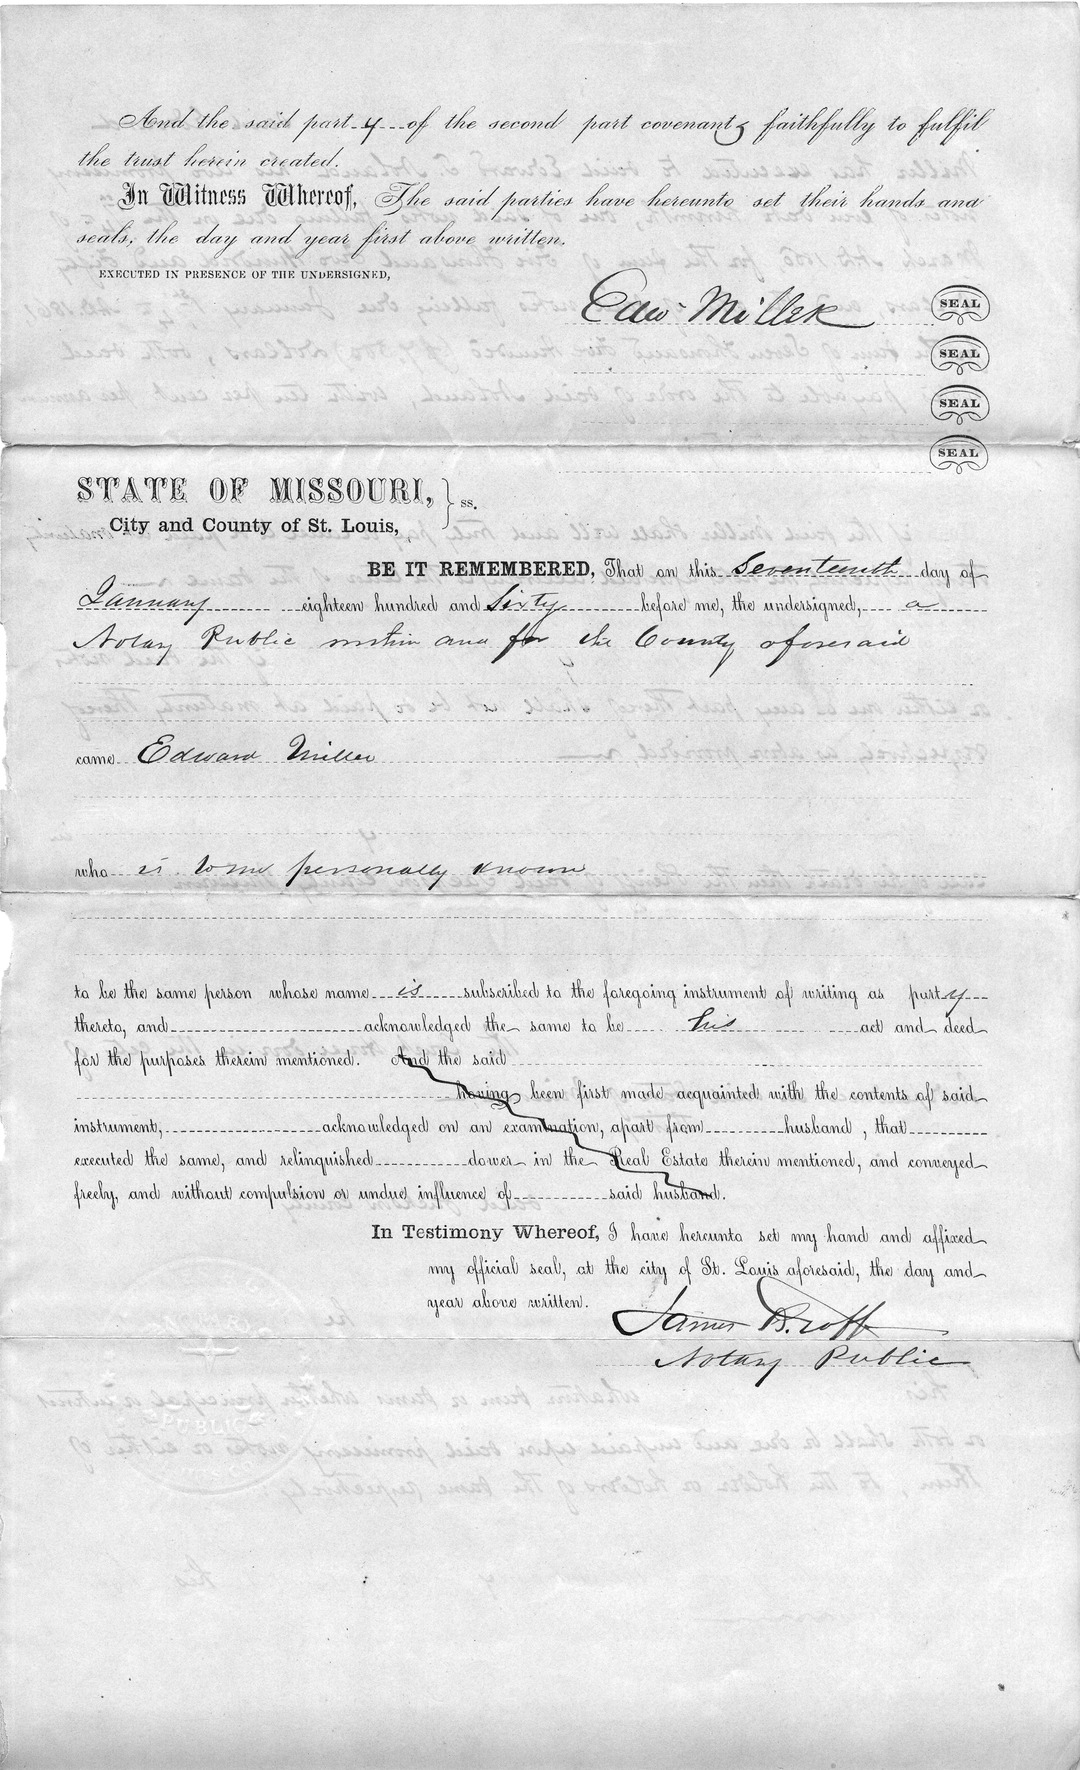 And the said part y of the second part covenants faithfully to fulfil
the trust herein created.
In Witness Whereof, The said parties have hereunto set their hands and
seals, the day and year first above written.
EXECUTED IN PRESENCE OF THE UNDERSIGNED,
Edw Miller SEAL
SEAL
SEAL
SEAL
STATE OF MISSOURI, } ss.
City and County of St. Louis,
BE IT REMEMBERED, That on this Seventeenth day of
January eighteen hundred and Sixty before me, the undersigned, a
Notary Public within and for the County aforesaid
came Edward Miller
who is to me personally known
to be the same person whose name is subscribed to the foregoing instrument of writing as party
thereto, and acknowledged the same to be his act and deed
for the purposes therein mentioned. And the said
having been first made acquainted with the contents of said
instrument, acknowledged on an examination, apart from husband, that
executed the same, and relinquished dower in the Real Estate therein mentioned, and conveyed
freely, and without compulsion or undue influence of said husband.
In Testimony Whereof, I have hereunto set my hand and affixed
my official seal, at the city of St. Louis aforesaid, the day and
year above written.
James
Notary Public
PUBLIC